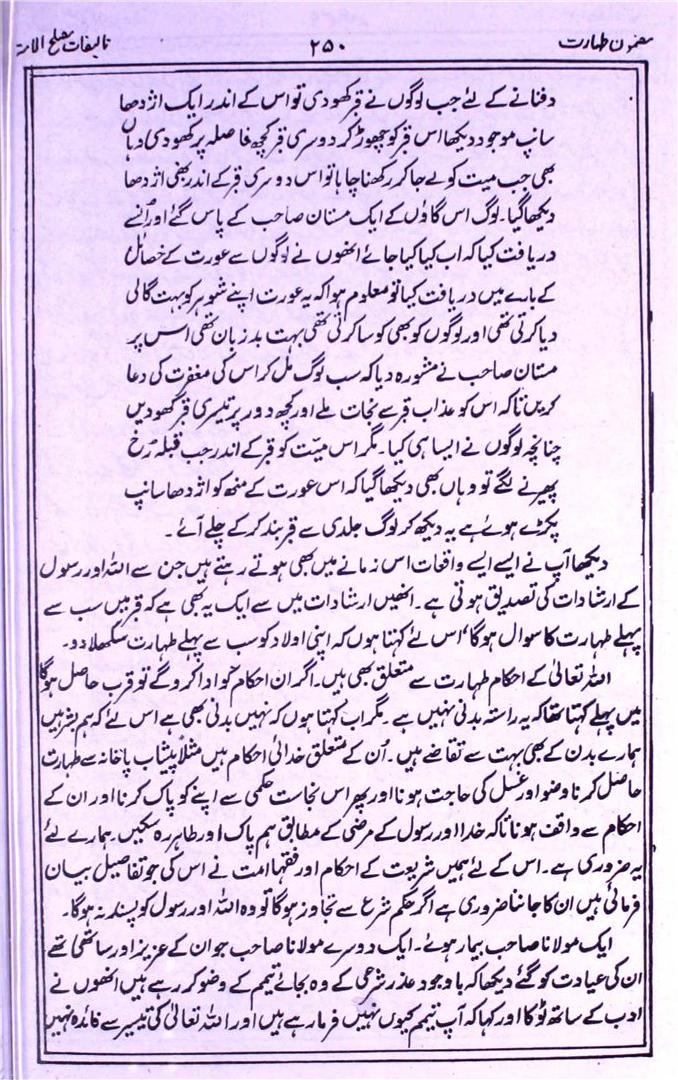 مضمون طہارت ۲۵۰ تالیفات مصلح الامت
دفنانے کے لئے جب لوگوں نے قبر کھودی تو اس کے اندر ایک اژدھا
سانپ موجود دیکھا اس قبر کو چھوڑ کر دوسری قبر کچھ فاصلہ پر کھودی وہاں
بھی جب میت کو لے جاکر رکھنا چاہا تو اس دوسری قبر کے اندر بھی اژدھا
دیکھا گیا۔ لوگ اس گاؤں کے ایک مستان صاحب کے پاس گئے اور اُنسے
دریافت کیا کہ اب کیا کیا جائے انھوں نے لوگوں سے عورت کے خصائل
کے بارے میں دریافت کیا تو معلوم ہوا کہ یہ عورت اپنے شوہر کو بہت گالی
دیا کرتی تھی اور لوگوں کو بھی کوسا کرتی تھی بہت بدزبان تھی اس پر
مستان صاحب نے مشورہ دیا کہ سب لوگ مل کر اس کی مغفرت کی دعا
کریں تاکہ اس کو عذاب قبر سے نجات ملے اور کچھ دور پر تیسری قبر کھودیں
چنانچہ لوگوں نے ایسا ہی کیا۔ مگر اس میّت کو قبر کے اندر جب قبلہ رُخ
پھیرنے لگے تو وہاں بھی دیکھا گیا کہ اس عورت کے منھ کو اژدھا سانپ
پکڑے ہوئے ہے یہ دیکھ کر لوگ جلدی سے قبر بند کرکے چلے آئے۔
دیکھا آپ نے ایسے ایسے واقعات اس زمانے میں بھی ہوتے رہتے ہیں جن سے اللہ اور رسول
کے ارشادات کی تصدیق ہوتی ہے۔ انھیں ارشادات میں سے ایک یہ بھی ہے کہ قبر میں سب سے
پہلے طہارت کا سوال ہوگا، اس لئے کہتا ہوں کہ اپنی اولاد کو سب سے پہلے طہارت سکھلا دو۔
اللہ تعالیٰ کے احکام طہارت سے متعلق بھی ہیں۔ اگر ان احکام کو ادا کروگے تو قرب حاصل ہوگا
میں پہلے کہتا تھا کہ یہ راستہ بدنی نہیں ہے۔ مگر اب کہتا ہوں کہ نہیں بدنی بھی ہے اس لئے کہ ہم بشر ہیں
ہمارے بدن کے بھی بہت سے تقاضے ہیں۔ اُن کے متعلق خدائی احکام ہیں مثلاً پیشاب پاخانہ سے طہارت
حاصل کرنا وضو اور غسل کی حاجت ہونا اور پھر اس نجاست حکمی سے اپنے کو پاک کرنا اور ان کے
احکام سے واقف ہونا تاکہ خدا اور رسول کے مرضی کے مطابق ہم پاک اور طاہر رہ سکیں۔ ہمارے لئے
یہ ضروری ہے۔ اس کے لئے ہمیں شریعت کے احکام اور فقہا امت نے اس کی جو تفاصیل بیان
فرمائی ہیں ان کا جاننا ضروری ہے اگر حکم شرع سے تجاوز ہوگا تو وہ اللہ اور رسول کو پسند نہ ہوگا۔
ایک مولانا صاحب بیمار ہوئے۔ ایک دوسرے مولانا صاحب جو ان کے عزیز اور ساتھی تھے
ان کی عیادت کو گئے دیکھا کہ باوجود عذر شرعی کے وہ بجائے تیمم کے وضو کر رہے ہیں انھوں نے
ادب کے ساتھ ٹوکا اور کہا کہ آپ تیمم کیوں نہیں فرما رہے ہیں اور اللہ تعالیٰ کی تیسیر سے فائدہ نہیں